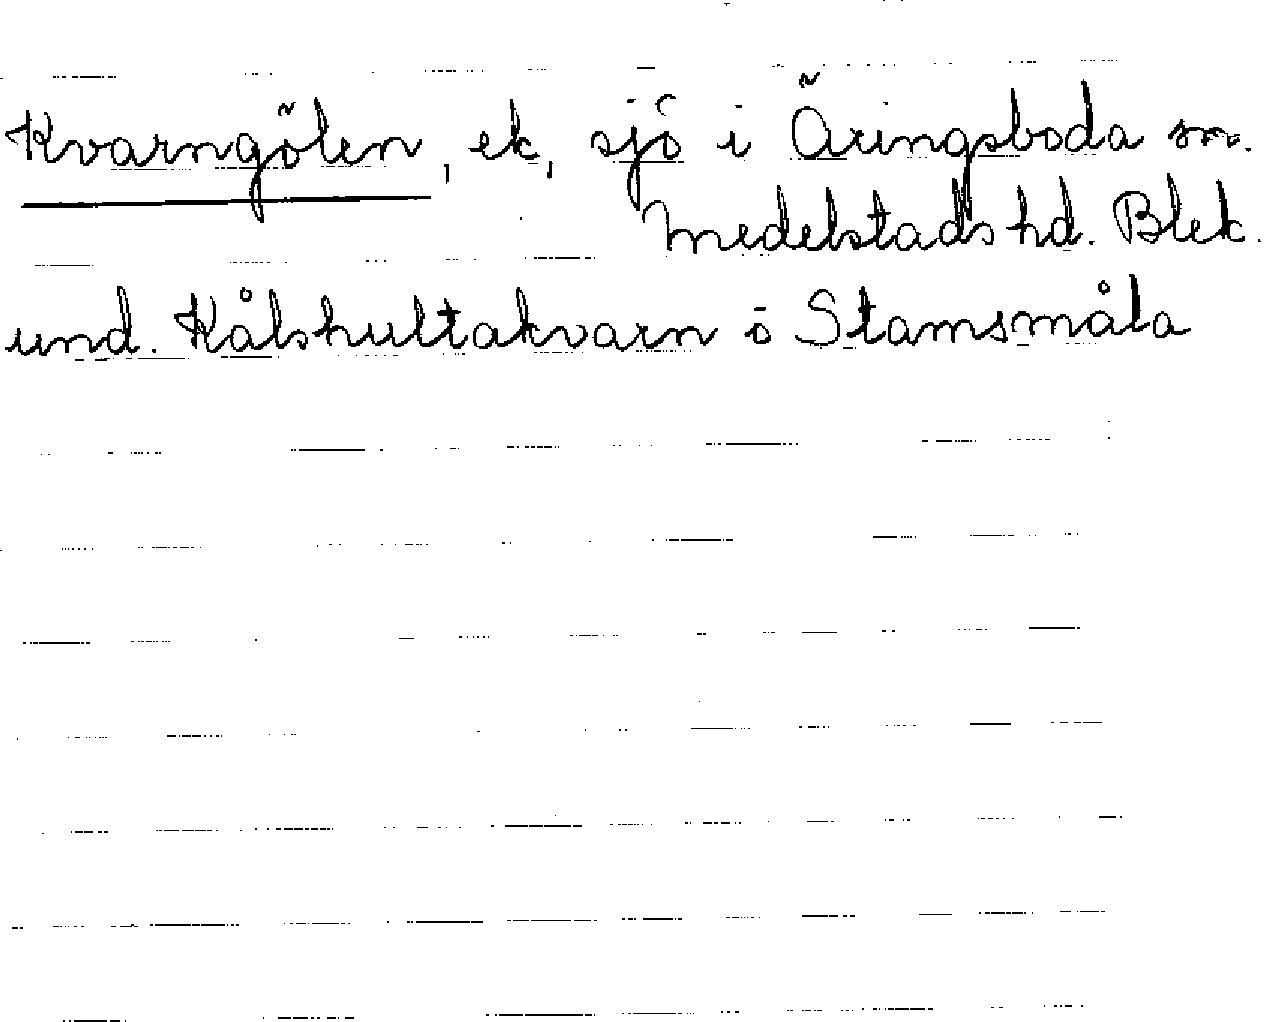 Kvarngölen, ek, sjö i Äringsboda sn.
Medelstads hd. Blek.
und. Kålshultakvarn i Stamsmåla